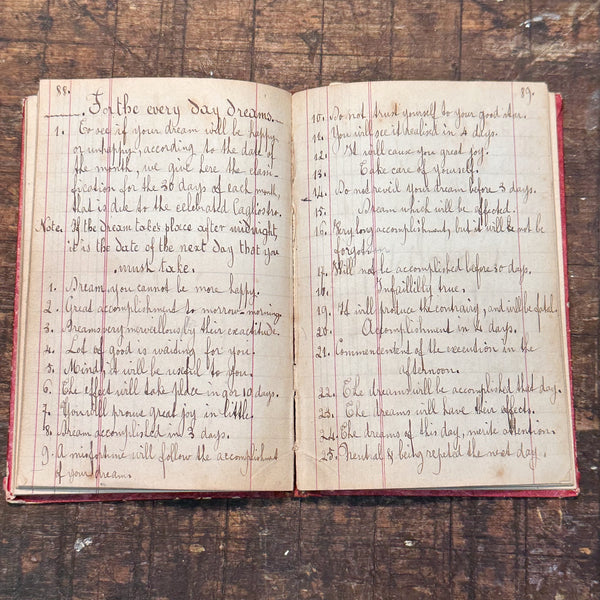 88.
For the every day dreams.
1. To see if your dream will be happy
or unhappy, according to the date of
the month, we give here the classi-
fication for the 30 days of each month,
that is due to the celebrated Cagliostro.
Note. If the dream takes place after midnight,
it is the date of the next day that you
must take.
1. Dream you cannot be more happy.
2. Great accomplishment to morrow-morning.
3. Dreams very merveillously by their exactitude.
4. Lot of good is waiting for you.
5. Mind, it will be useful to you.
6. The effect will take place in 9 or 10 days.
7. You will prouve great joy in little.
8. Dream accomplished in 3 days.
9. A misfortune will follow the accomplishment
of your dream.
89.
10. Do not trust yourself to your good star.
11. You will see it realised in 4 days.
12. It will cause you great joy.
13. Take care of yourself.
14. Do not reveil your dream before 3 days.
15. Dream which will be effected.
16. Very long accomplishment, but it will not be
forgotten.
17. Will not be accomplished before 30 days.
18. Infaillibly true.
19. It will produce the contrairy, and will be
20. Accomplishment in 4 days.
21. Commencentent of the execution in the
afternoon.
22. The dreams will be accomplished that day.
23. The dreams will have their effects.
24. The dreams of this day, merite attention.
25. Neutral & being repeted the next day.